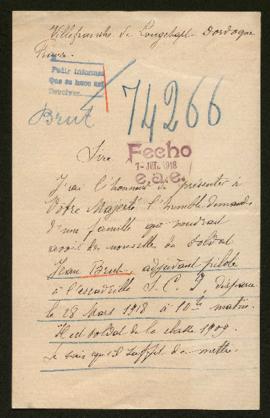 Villefranche de Longchapt - Dordogne
Pedir informes
Que se hace así
Devolver.
Brut
74266
Sire
Fecho
1-JUL.1918
e.a.e.
J'ai l'honneur de présenter à
Votre Majesté l'humble demande
d'une famille qui voudrait
avoir des nouvelles du soldat
Jean Brut adjudant pilote
à l'escadrille S. C. disparu
le 28 Mars 1918 à 10h matin.
Il est soldat de la classe 1909.
Je sais qu'il de mettre